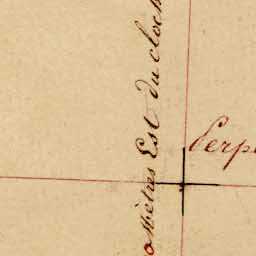 mètres Est du cloch
Perp